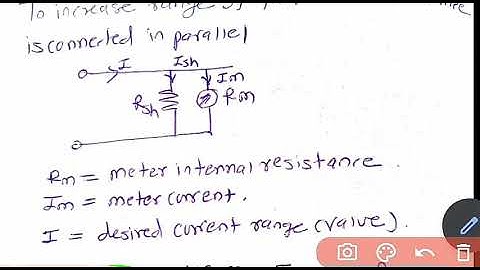 To increase range of
is connected in parallel
I Ish
Im
Rsh Rm
Rm = meter internal resistance.
Im = meter current.
I = desired current range (value).